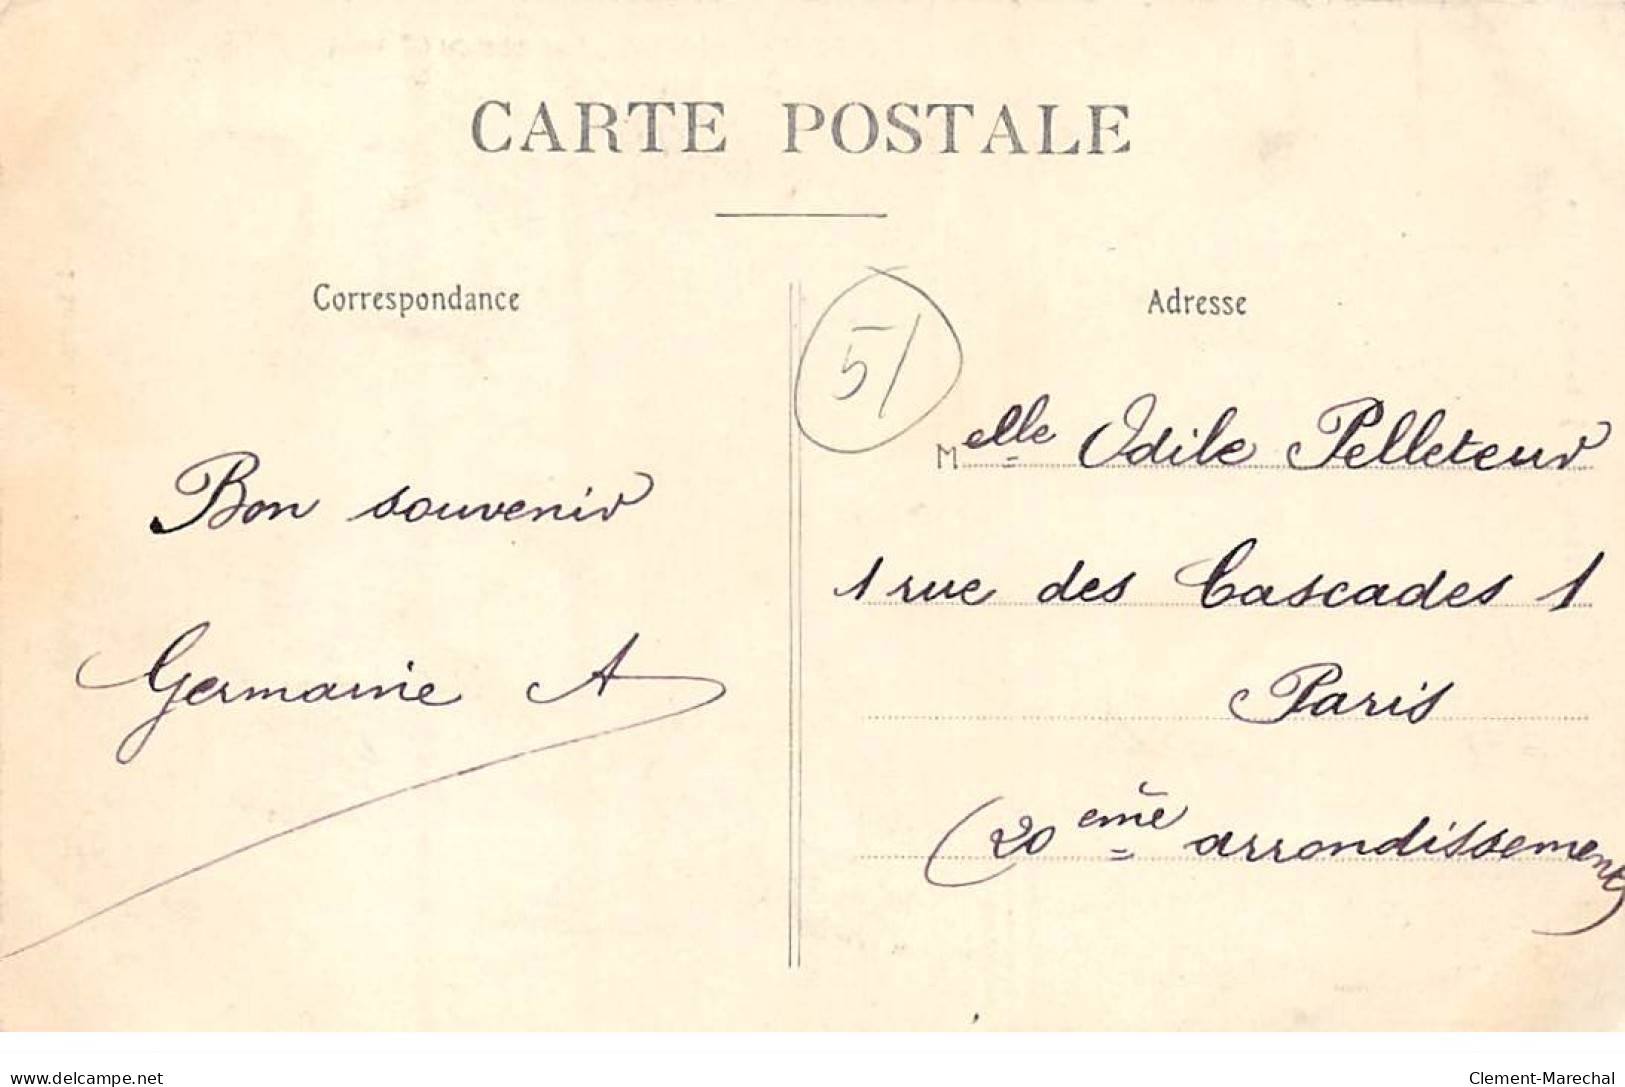 CARTE POSTALE
Correspondance
Bon souvenir
Germaine A
51
Adresse
Melle Odile Pelleteur
1 rue des Cascades 1
Paris
(20ème arrondissement)
delcampe.net
Clement-Marechal